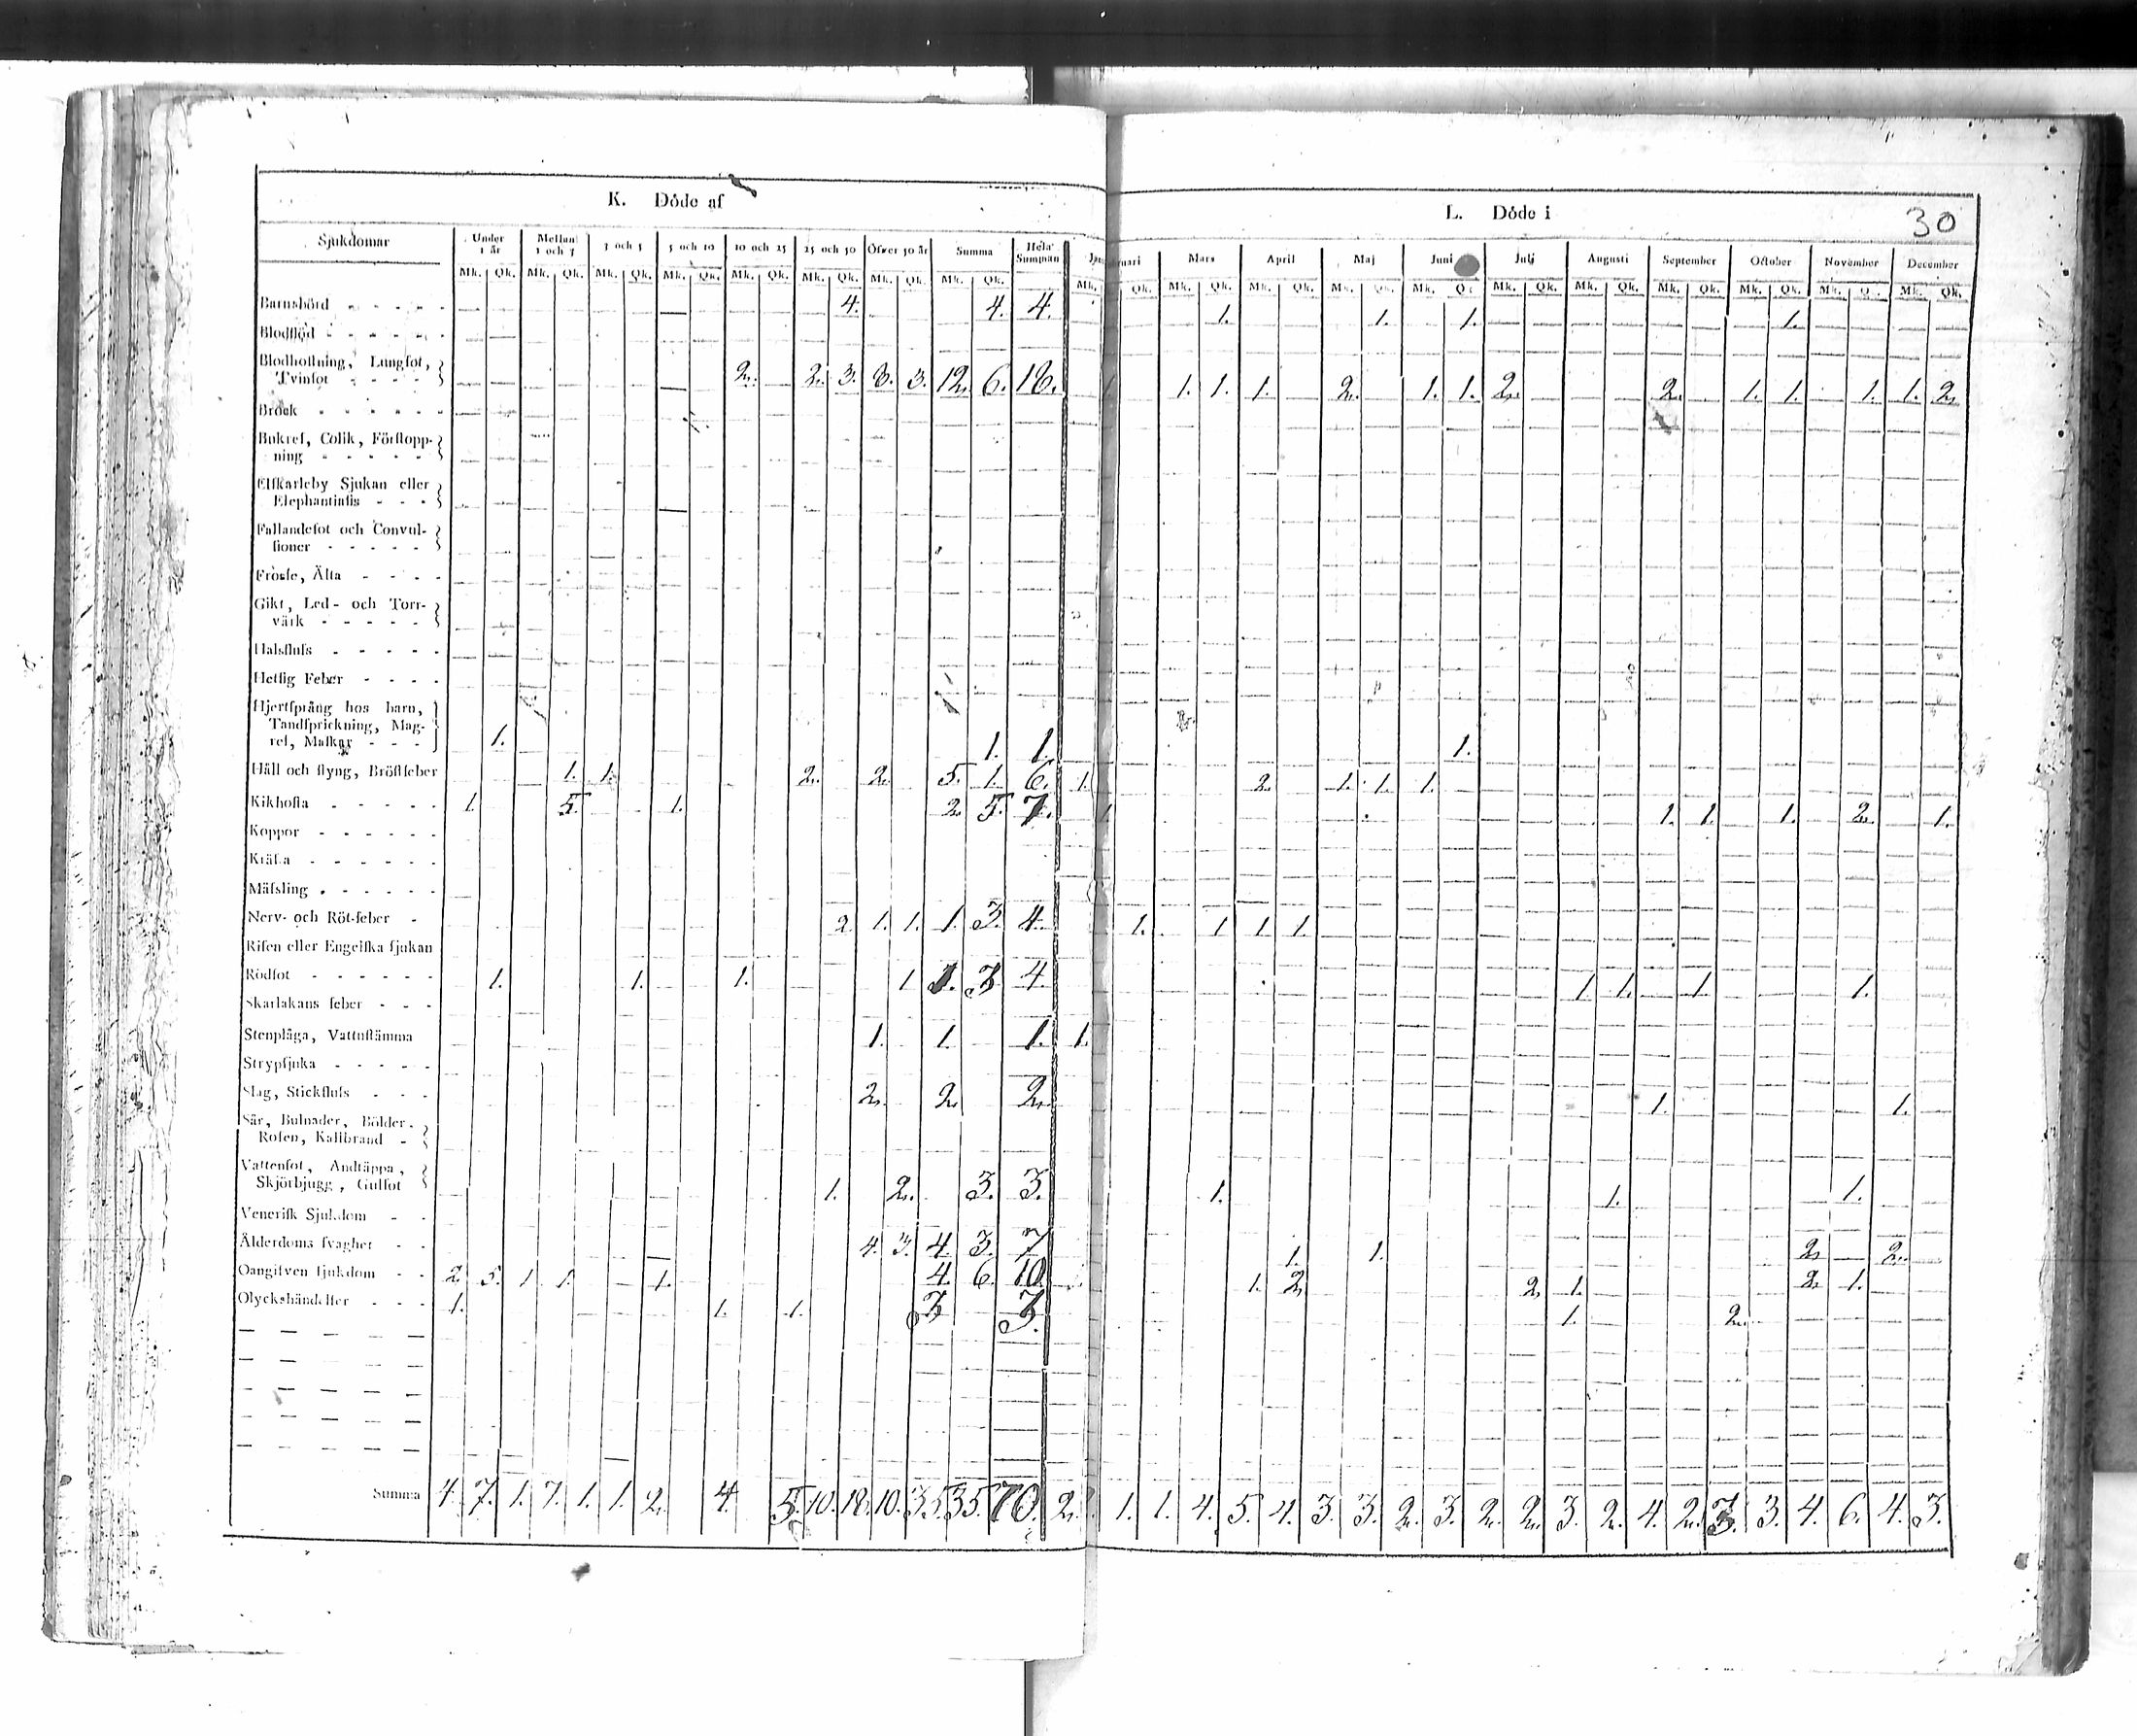 K. Döde af
L. Döde i
30
Sjukdomar Under 1 år Mellan 1 och 3 3 och 5 5 och 10 10 och 25 25 och 50 Öfver 50 år Summa Hela Summan
Mars April Maj Juni Julj Augusti September October November December
Mk. Qk. Mk. Qk. Mk. Qk. Mk. Qk. Mk. Qk. Mk. Qk. Mk. Qk. Mk. Qk. Mk.
Qk. Mk. Qk. Mk. Qk. Mk. Qk. Mk. Mk. Qk. Mk. Qk. Mk. Qk. Mk. Qk. Mk. Mk. Qk.
Barnsbörd - - - - 4. 4. 4. 1. 1. 1. 1.
Blodflöd - - - - -
Blodhostning, Lungsot,
Tvinsot - - - - 2. 2. 3. 8. 3. 12. 6. 18. 1. 1. 1. 1. 2. 1. 1. 2. 2. 1. 1. 1. 1. 2.
Bråck - - - - - -
Bukref, Colik, Förstopp-
ning - - - - -
Elfkarleby Sjukan eller
Elephantiasis - - -
Fallandesot och Convul-
sioner - - - - -
Frossa, Älta - - - -
Gikt, Led- och Torr-
värk - - - - -
Halsfluss - - - - -
Hetsig Feber - - - -
Hjertsprång hos barn,
Tandsprickning, Mag-
ref, Maskar - - - 1. 1. 1. 1.
Håll och styng, Bröstfeber 1. 1. 2. 2. 5. 1. 6. 1. 2. 1. 1. 1.
Kikhosta - - - - - 1. 5. 1. 2. 5. 7. 1. 1. 1. 1. 2. 1.
Koppor - - - - - -
Kräfta - - - - - -
Mässling - - - - - -
Nerv- och Röt-feber - 2. 1. 1. 1. 3. 4. 1. 1. 1. 1.
Risen eller Engelska sjukan
Rödsot - - - - - - 1. 1. 1. 1 1. 3 4. 1. 1. 1. 1.
Skarlakans feber - - -
Stenplåga, Vattustämma 1. 1. 1. 1.
Strypsjuka - - - - -
Slag, Stickfluss - - - 2. 2. 2. 1. 1.
Sår, Bulnader, Bölder,
Rosen, Kallbrand -
Vattensot, Andtäppa,
Skjörbjugg, Gulsot 1. 2. 3. 3. 1. 1. 1.
Venerisk Sjukdom - -
Ålderdoms svaghet - - 4. 3. 4. 3. 7 1. 1. 2. 2.
Oangifven sjukdom - - 2. 5. 1. 1. 1. 4. 6. 10. 1. 2. 2. 1. 2. 1.
Olyckshändelser - - - 1. 1. 1. 3 3. 1. 2.
Summa 4. 7. 1. 7. 1. 1. 2. 4. 5. 10. 18. 10. 35. 35. 70. 2. 1. 1. 4. 5. 4. 3. 3. 2. 3. 2. 2. 3. 2. 4. 2. 3. 3. 4. 6. 4. 3.